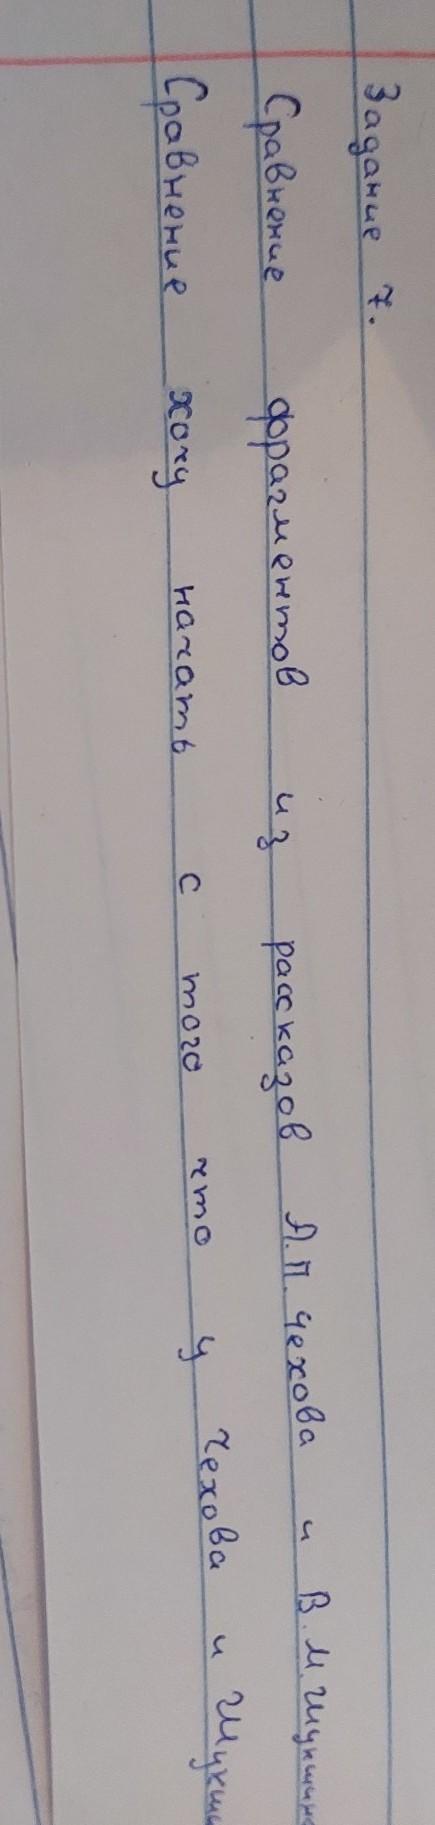 Задание 7.
Сравнение фрагментов из рассказов А.П.Чехова и В.М.Шукшина
Сравнение хочу начать с того что у Чехова и